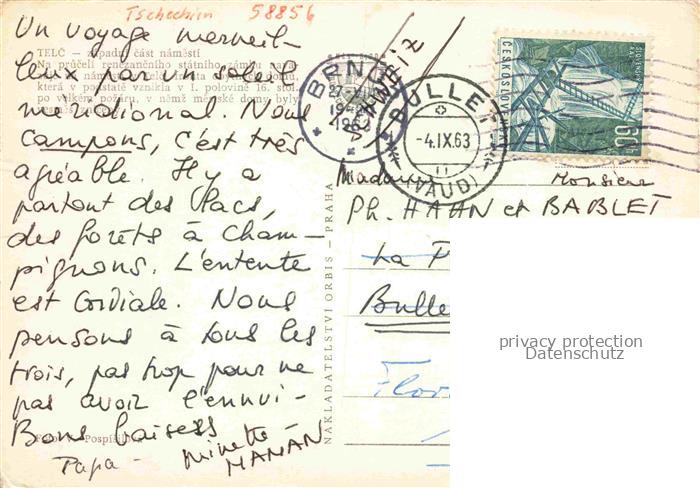 Tschechien 58856
TELČ — západní část náměstí
Na průčelí renezančního státního zámku
po velkém požáru, v němž měšťské domy byly
Un voyage merveil-
leux par un soleil
méridional. Nous
campons, c'est très
agréable. Il y a
partout des lacs,
des forêts à cham-
pignons. L'entente
est cordiale. Nous
pensons à tous les
trois, pas trop pour ne
pas avoir l'ennui-
Bons baisers
Papa - Minette -
MAMAN
Pospíšil
NAKLADATELSTVÍ ORBIS — PRAHA
BRNO
27
1963
BULLET
-4.IX.63
(VAUD)
ČESKOSLOVENSKO
60h
Madame Monsieur
Ph. HAHN et BABLET
La P
Bulle
Flor
privacy protection
Datenschutz